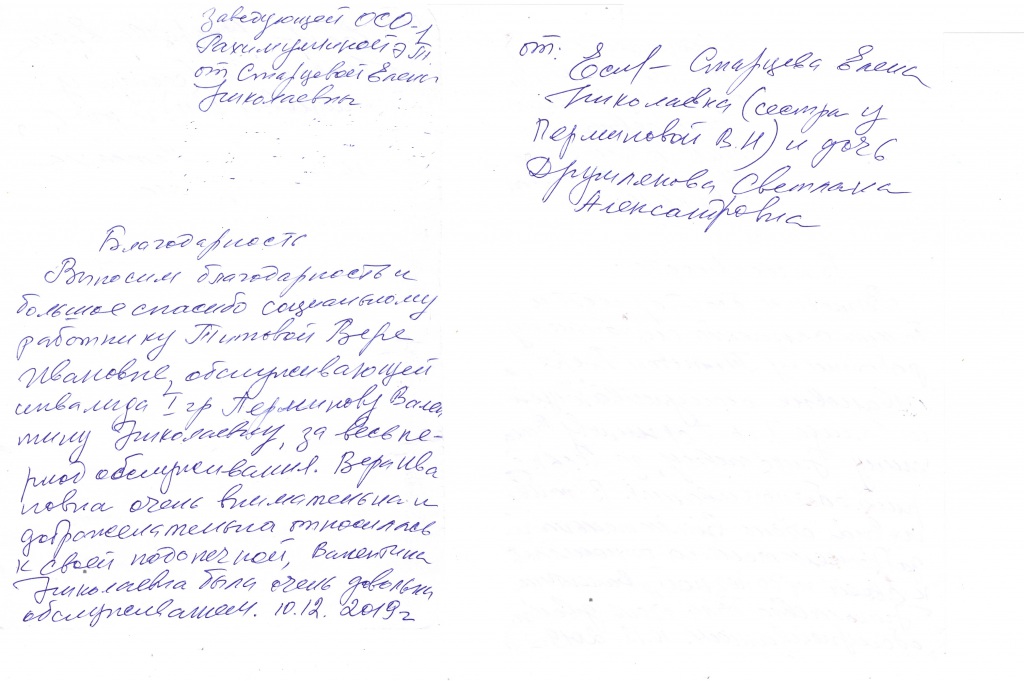 Заведующей ОСО-1
Рахимуллиной Э.Т.
от Старцевой Елены
Николаевны
Благодарность
Выносим благодарность и
большое спасибо социальному
работнику Титовой Вере
Ивановне, обслуживающей
инвалида I гр Перминову Вален
тину Николаевну, за весь пе-
риод обслуживания. Вера Ива
новна очень внимательна и
доброжелательна относилась
к своей подопечной, Валентина
Николаевна была очень довольна
обслуживанием. 10.12. 2019г
от:
Старцева Елена
Николаевна (сестра у
Перминовой В.Н) и дочь
Друмлякова Светлана
Александровна